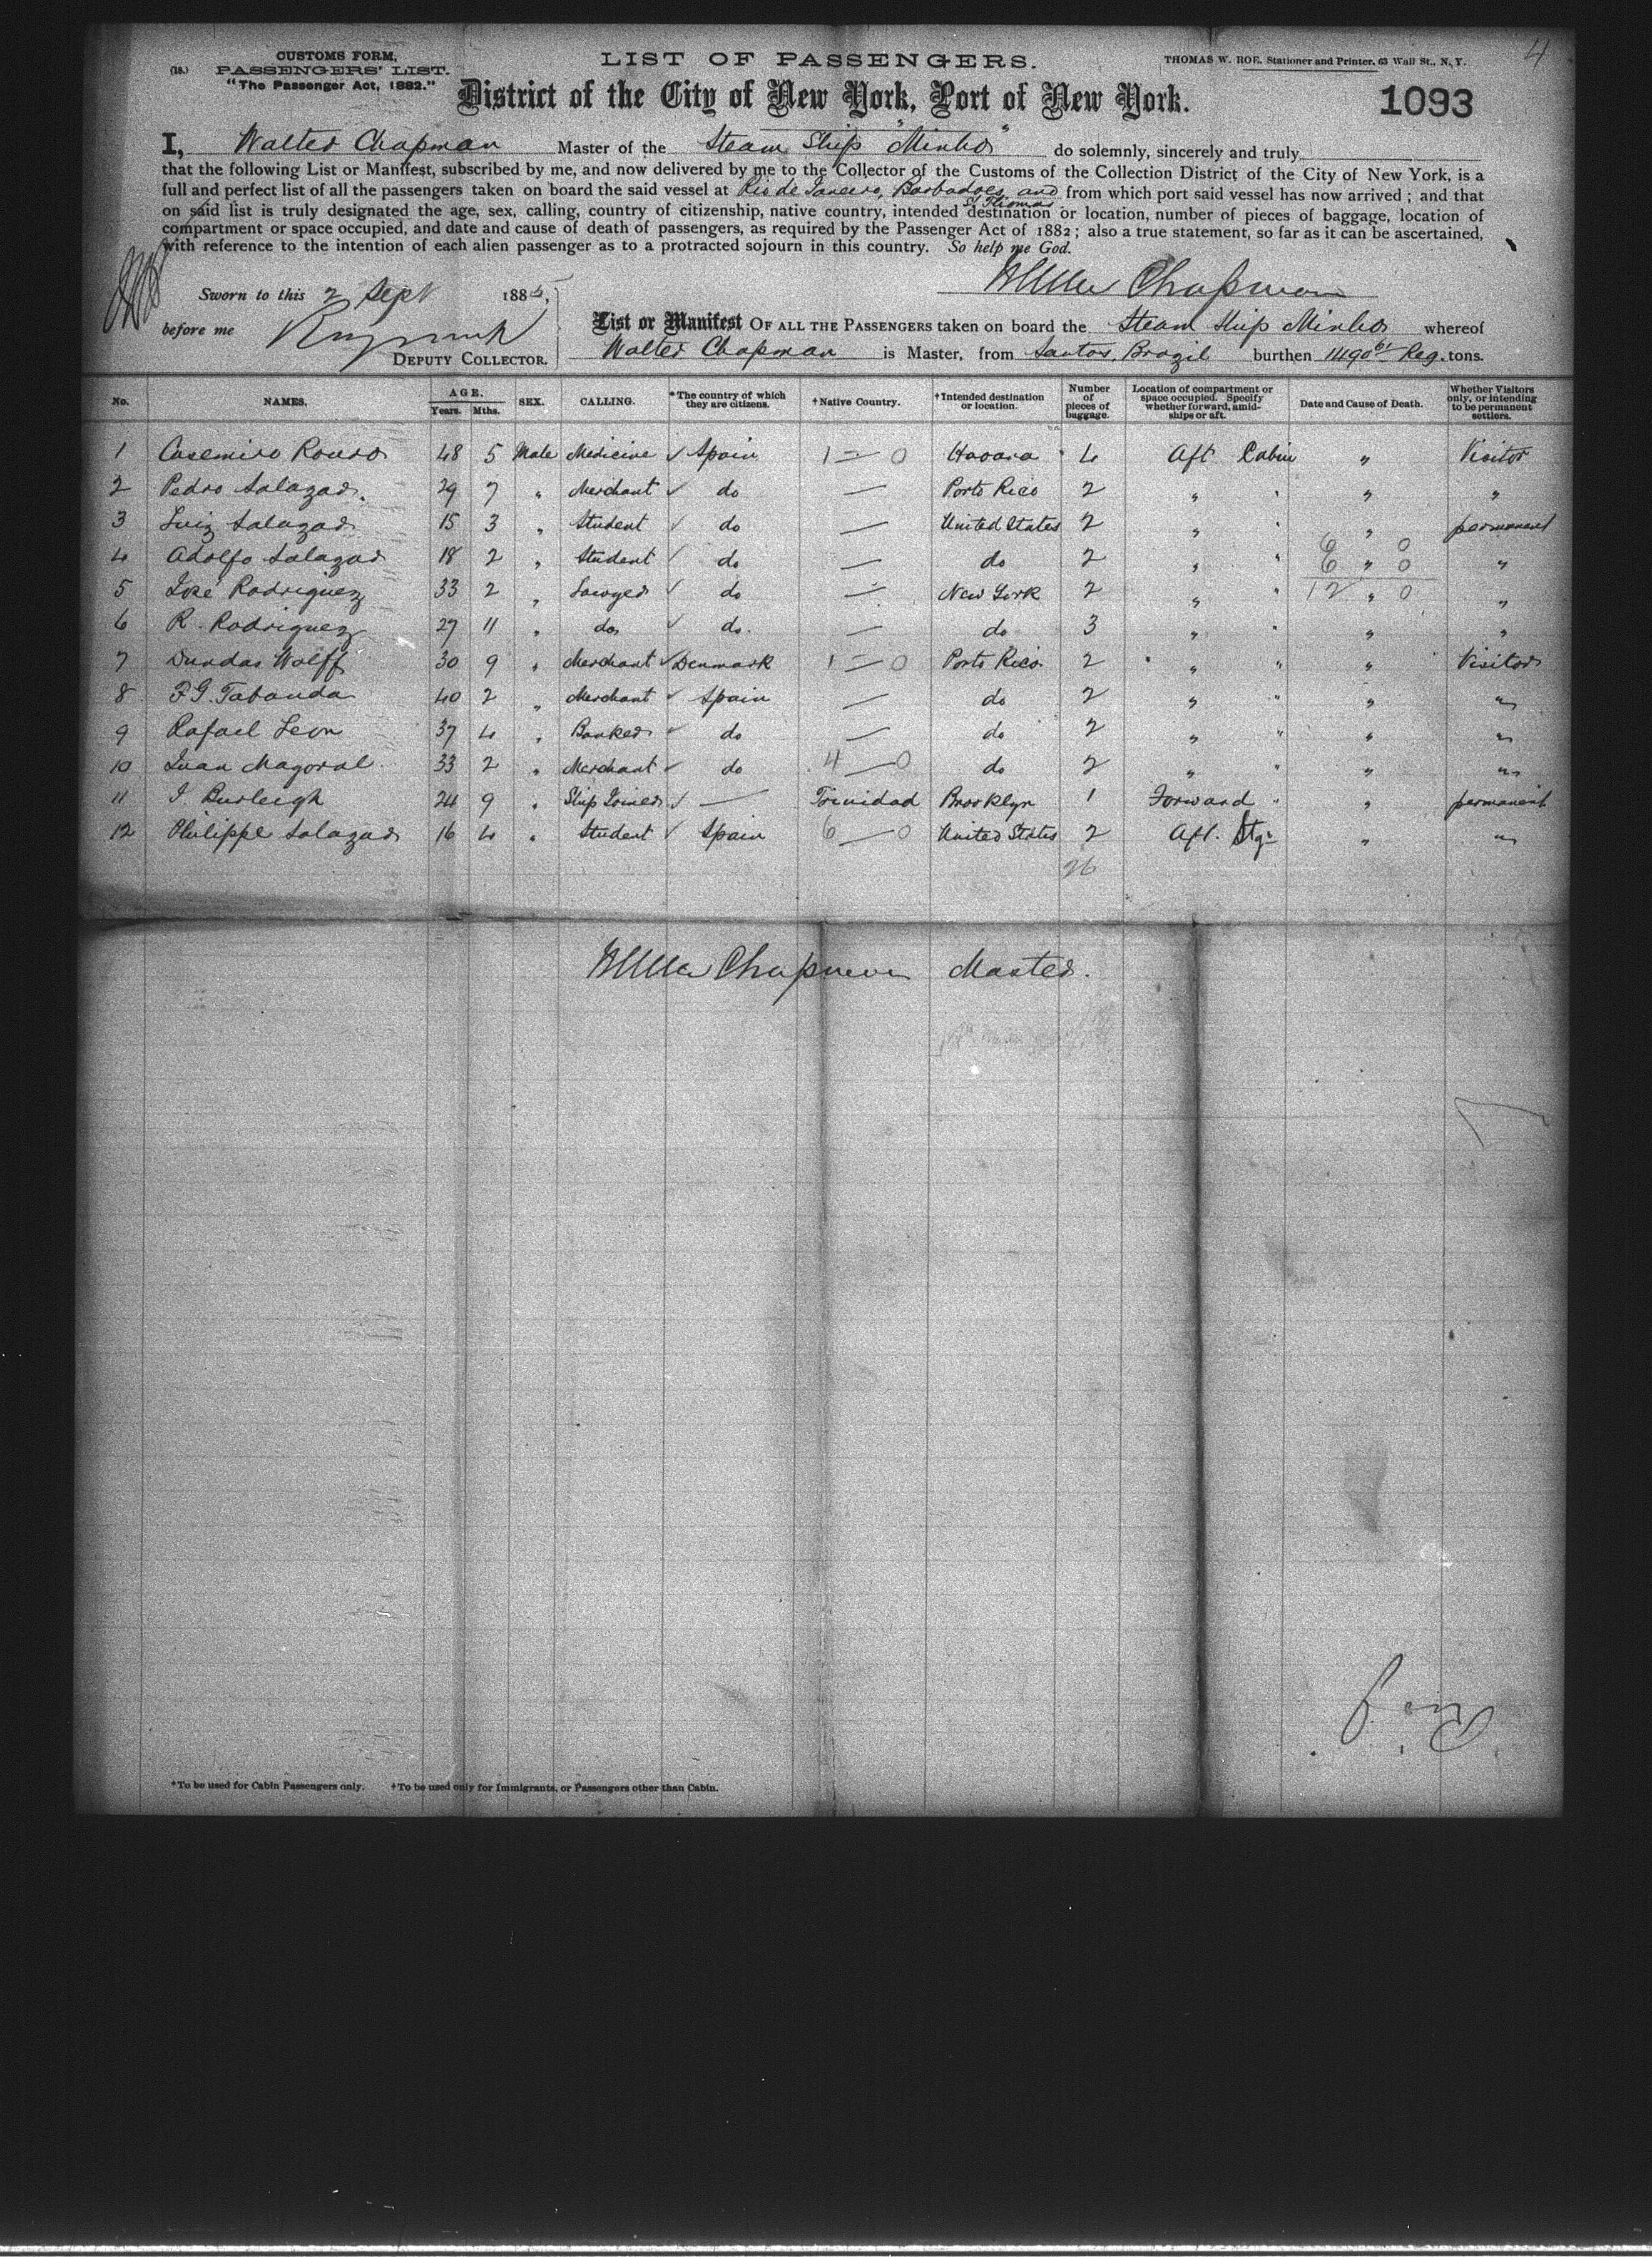 4
(18.) CUSTOMS FORM, PASSENGERS' LIST. "The Passenger Act, 1882."
LIST OF PASSENGERS.
THOMAS W. ROE, Stationer and Printer, 63 Wall St., N. Y.
District of the City of New York, Port of New York.
1093
I, Walter Chapman Master of the Steam Ship "Minho" do solemnly, sincerely and truly
that the following List or Manifest, subscribed by me, and now delivered by me to the Collector of the Customs of the Collection District of the City of New York, is a
full and perfect list of all the passengers taken on board the said vessel at Rio de Janeiro, Barbadoes, and St Thomas from which port said vessel has now arrived; and that
on said list is truly designated the age, sex, calling, country of citizenship, native country, intended destination or location, number of pieces of baggage, location of
compartment or space occupied, and date and cause of death of passengers, as required by the Passenger Act of 1882; also a true statement, so far as it can be ascertained,
with reference to the intention of each alien passenger as to a protracted sojourn in this country. So help me God.
Walter Chapman
Sworn to this 2 Sept 188
before me
DEPUTY COLLECTOR.
List or Manifest OF ALL THE PASSENGERS taken on board the Steam Ship Minho whereof
Walter Chapman is Master, from Santos, Brazil burthen 1490 Reg. tons.
No. NAMES. AGE. Years. Mths. SEX. CALLING. *The country of which they are citizens. †Native Country. †Intended destination or location. Number of pieces of baggage. Location of compartment or space occupied. Specify whether forward, amidships or aft. Date and Cause of Death. Whether Visitors only, or intending to be permanent settlers.
1 Casemiro 48 5 Male Medicine ✓ Spain 1 — 0 Havana 4 Aft Cabin " Visitor
2 Pedro Salazar. 29 7 " Merchant ✓ do — Porto Rico 2 " " " "
3 Luiz Salazar 15 3 " Student ✓ do — United States 2 " " " permanent
4 Adolfo Salazar 18 2 " Student ✓ do — do 2 " " 6 " 0 "
5 José Rodriguez 33 2 " Lawyer ✓ do — New York 2 " " 12 " 0 "
6 R. Rodriguez 27 11 " do ✓ do. — do 3 " " " "
7 Dundas Wolff 30 9 " Merchant ✓ Denmark 1 — 0 Porto Rico 2 " " " Visitor
8 F G. Tabanda 40 2 " Merchant ✓ Spain — do 2 " " " "
9 Rafael Leon 37 4 " Banker ✓ do — do 2 " " " "
10 Juan Mayoral 33 2 " Merchant ✓ do 4 — 0 do 2 " " " "
11 J. Burleigh 24 9 " Ship Joiner ✓ — Trinidad Brooklyn 1 Forward " " permanent
12 Philippe Salazar 16 4 " Student ✓ Spain 6 — 0 United States 2 Aft. Stg. " "
26
Walter Chapman Master.
*To be used for Cabin Passengers only. †To be used only for Immigrants, or Passengers other than Cabin.